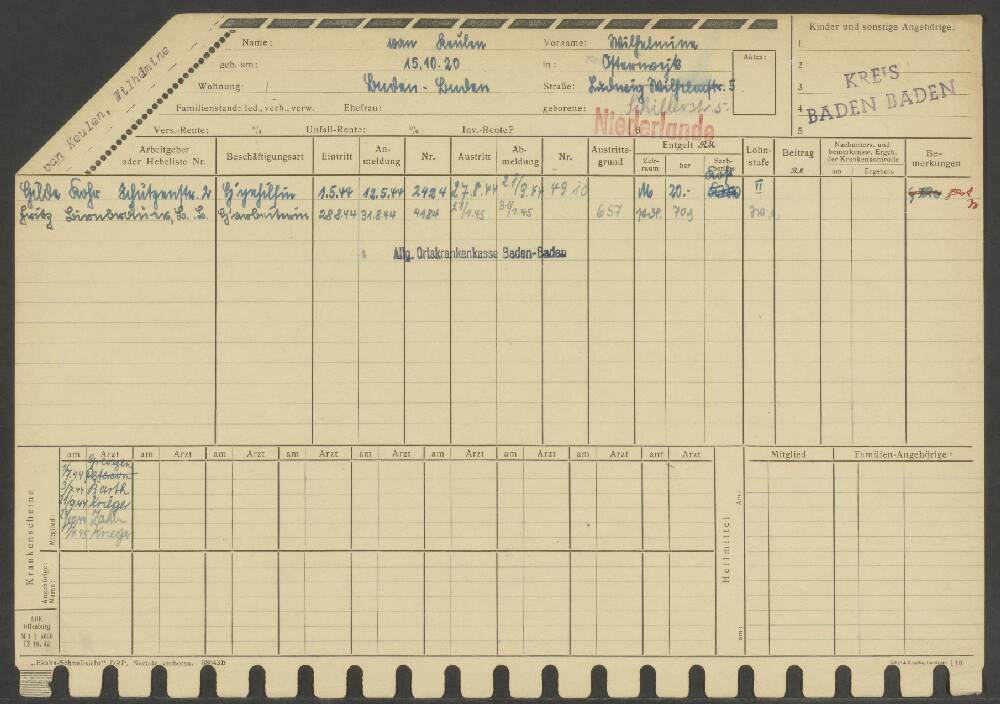 van Keulen, Wilhelmine
Name: van Keulen Vorname: Wilhelmine
geb. am: 15.10.20 in: Osterwejk Akten:
Wohnung: Baden-Baden Straße: Ludwig Wilhelmstr. 5
Schillerstr. 5.
Familienstand: led., verh., verw. Ehefrau: geborene:
Niederlande
Vers.-Rente: % Unfall-Rente: % Inv.-Rente?
Kinder und sonstige Angehörige:
1
2
3
4
5
6
KREIS
BADEN BADEN
Arbeitgeber oder Hebeliste Nr. Beschäftigungsart Eintritt An-meldung Nr. Austritt Ab-meldung Nr. Austritts-grund Entgelt RM Zeit-raum bar Sach-bezüge Lohn-stufe Beitrag RM Nachunters. und bemerkensw. Ergeb. der Krankenkontrolle am Ergebnis Be-merkungen
Hilde Rohr Schützenstr. 2 H'gehilfin 1.5.44 12.5.44 2424 27.8.44 4920 Mo 20.- Kost II
Fritz B.B. H'arbeiterin 28.8.44 31.8.44 4184 1.45 1.45 657
Allg. Ortskrankenkasse Baden-Baden
am Arzt am Arzt am Arzt am Arzt am Arzt am Arzt am Arzt am Arzt am Arzt
Mitglied Familien-Angehörige:
Barth
Krieger
Zahn
Krieger
Krankenscheine
Mitglied:
Angehörige: Name:
Heilmittel
Art:
am:
AOK-
Offenburg
M 1 | 5000
IX 10. 42
„Ekaha-Schnellsicht" DRP. Nachdr. verboten.
L10